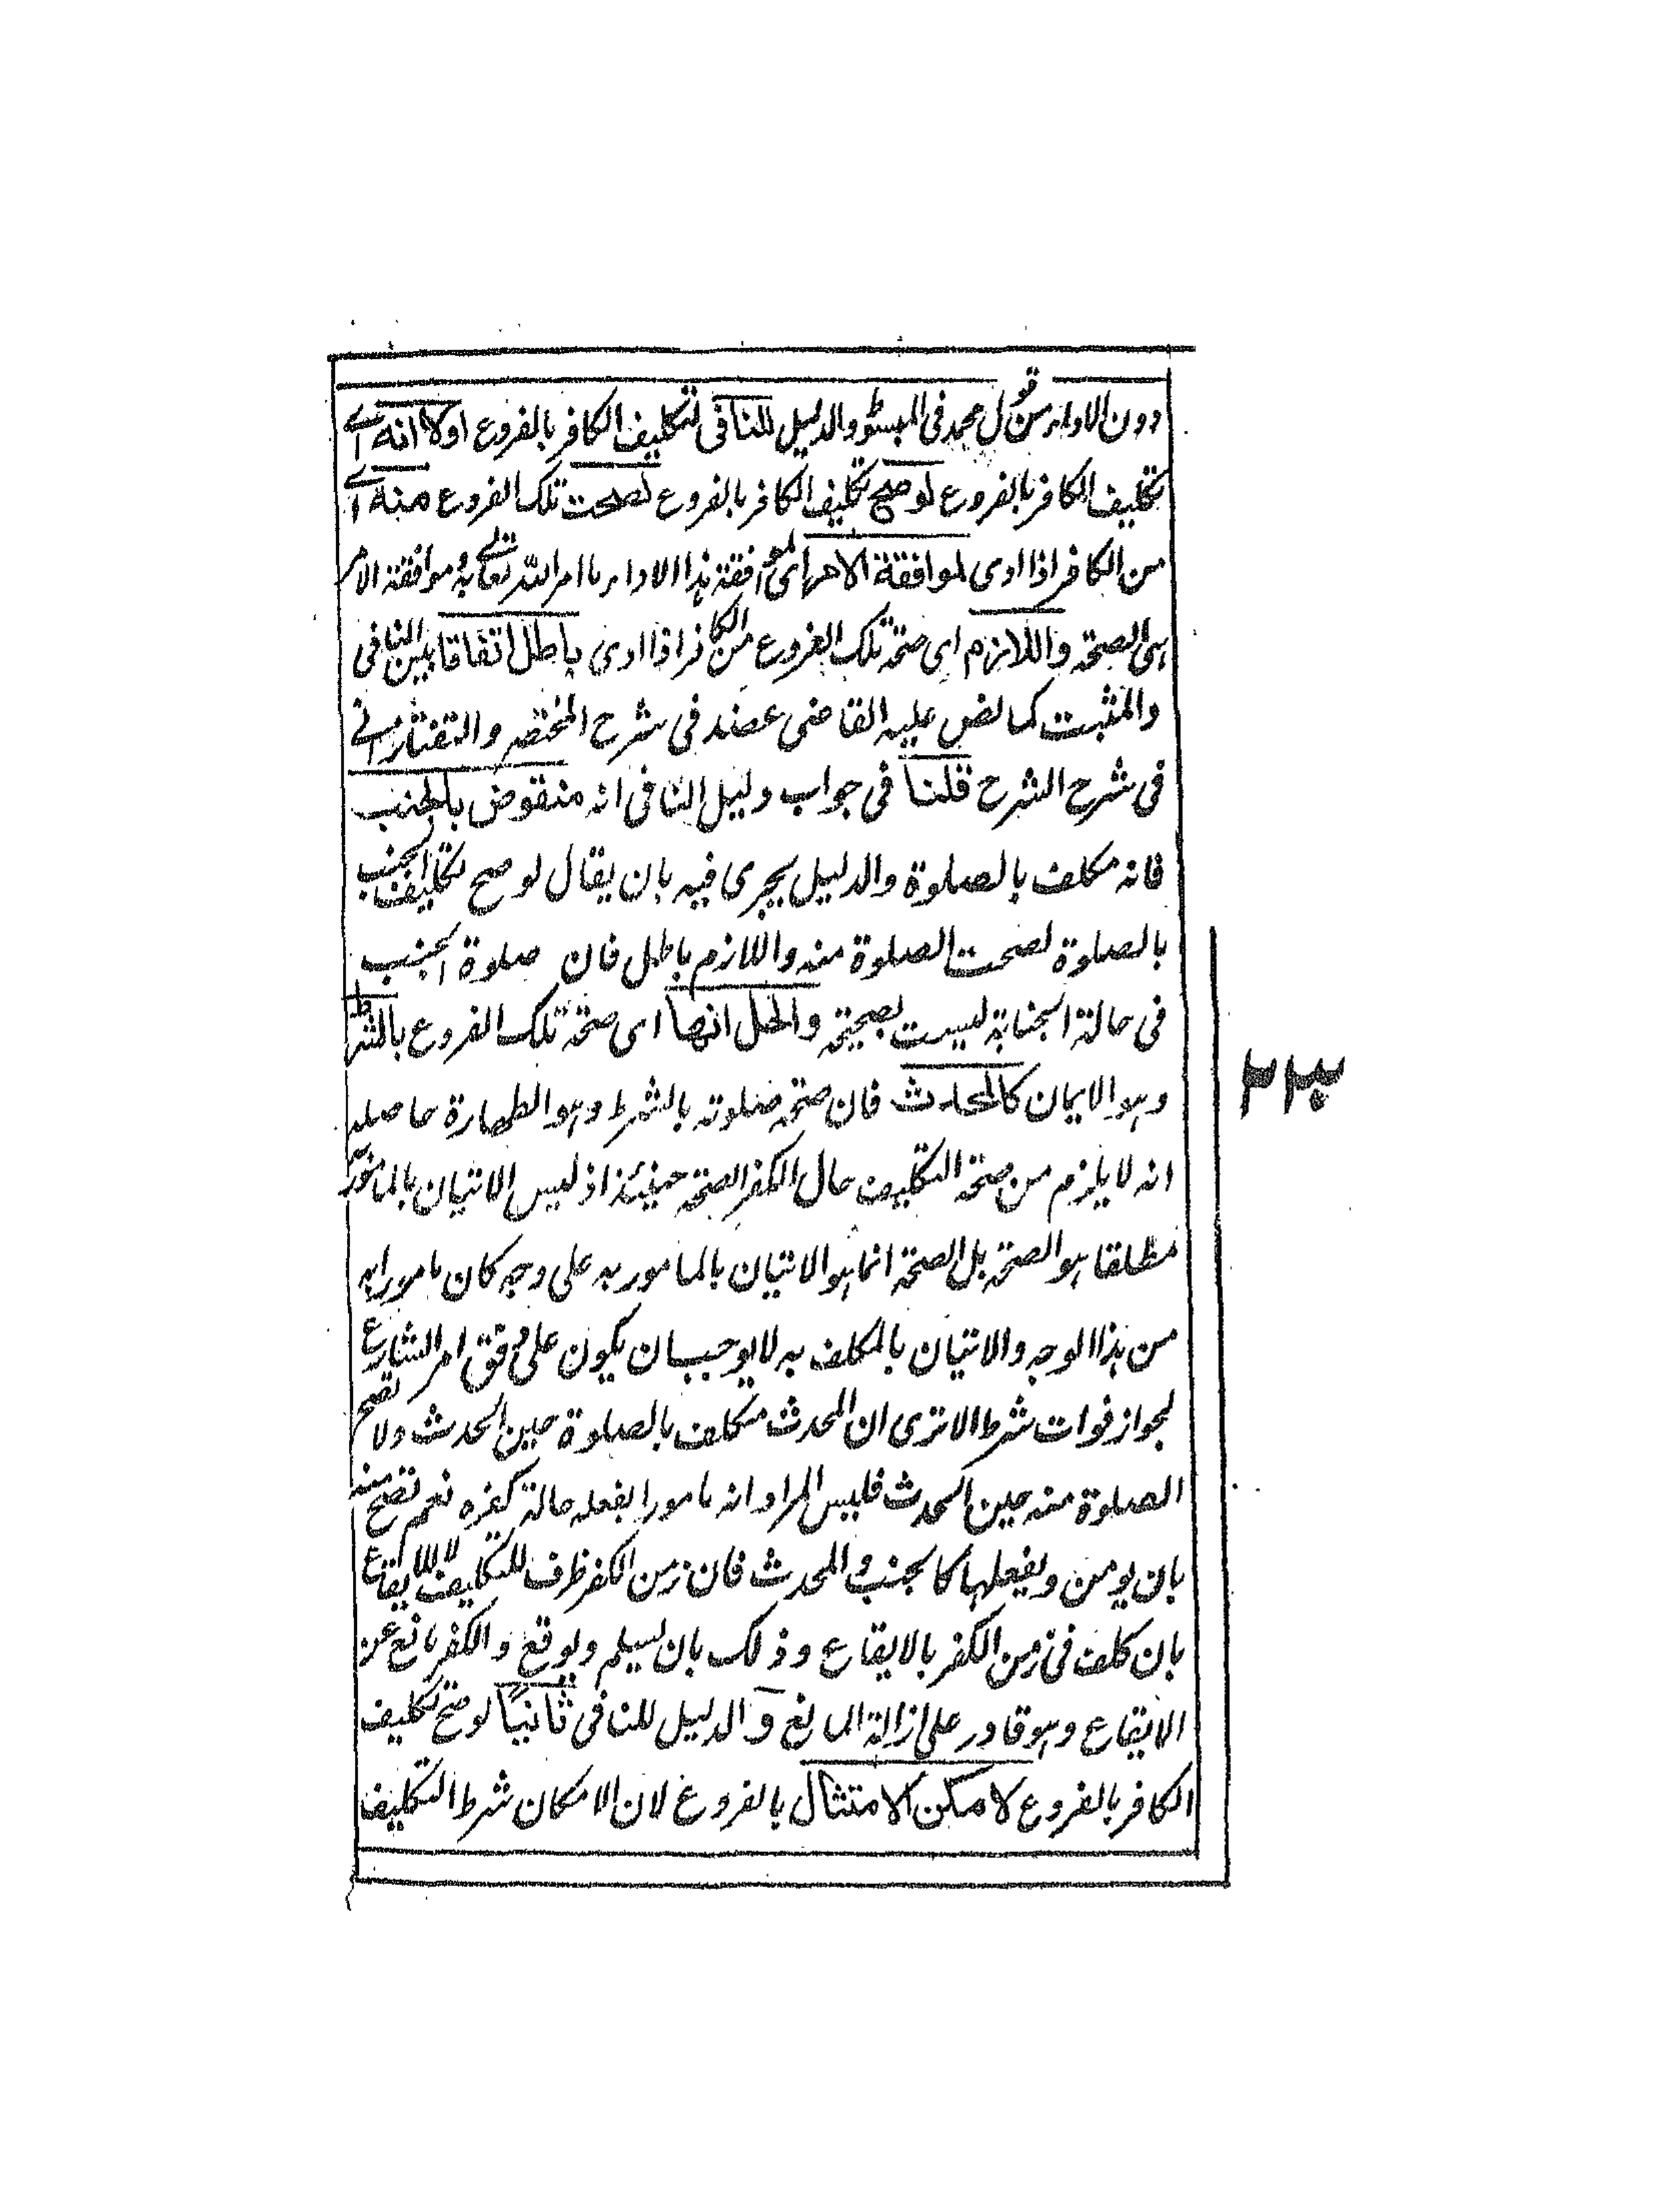 دون الاداء من قول محمد فى المبسوط والدليل للنافى لتكليف الكافر بالفروع اولا انه اے
تكليف الكافر بالفروع لو صح تكليف الكافر بالفروع لصحت تلك الفروع منه اے
من الكافر اذا ادى لموافقة الامر اى لموافقة هذا الاداء ما امر الله تعالے به وموافقة الامر
هى الصحة واللازم اى صحة تلك الفروع من الكافر اذا ادى باطل اتفاقا بين النافى
والمثبت كما نص عليه القاضى عضد فى شرح المختصر والتفتازانے
فى شرح الشرح قلنا فى جواب دليل النافى انه منقوض بالجنب
فانه مكلف بالصلوة والدليل يجرى فيه بان يقال لو صح تكليف الجنب
بالصلوة لصحت الصلوة منه واللازم باطل فان صلوة الجنب
فى حالة الجنابة ليست بصحيحة والحل انها اى صحة تلك الفروع بالشرط
وهو الايمان كالمحدث فان صحة صلوته بالشرط وهو الطهارة حاصله
انه لا يلزم من صحة التكليف حال الكفر الصحة حينئذ اذ ليس الاتيان بالمامور به
مطلقا هو الصحة بل الصحة انما هو الاتيان بالمامور به على وجه كان مامورا به
من هذا الوجه والاتيان بالمكلف به لا يوجب ان يكون على وفق امر الشارع
لجواز فوات شرط الا ترى ان المحدث مكلف بالصلوة حين الحدث ولا تصح
الصلوة منه حين الحدث فليس المراد انه مامورا بفعله حالة كفره نعم تصح منه
بان يومن ويفعلها كالجنب والمحدث فان زمن الكفر ظرف للتكليف لا للايقاع
بان كلف فى زمن الكفر بالايقاع وذلك بان يسلم ويوقع والكفر مانع عن
الايقاع وهو قادر على ازالة المانع و الدليل للنافى ثانيًا لو صح تكليف
الكافر بالفروع لامكن الامتثال بالفروع لان الامكان شرط التكليف
۲۲۳